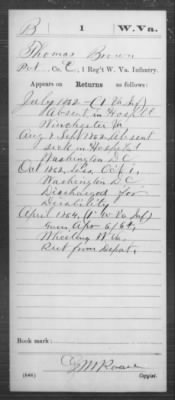 B | 1 | W. Va.
Thomas Brown
Pvt., Co. C, 1 Reg't W. Va. Infantry.
Appears on
Returns as follows:
July 1862 - (1 Va Inf)
Absent in Hospital
Winchester Va
Aug & Sept 1862 Absent
sick in Hospital
Washington D.C.
Oct 1862
Washington D.C.
Discharged for
Disability
April 1864. (1" W Va Inf)
Gain, Apr 5/64,
Wheeling W Va.
Rect from Depot.
Book mark:
(546)
Copyist.